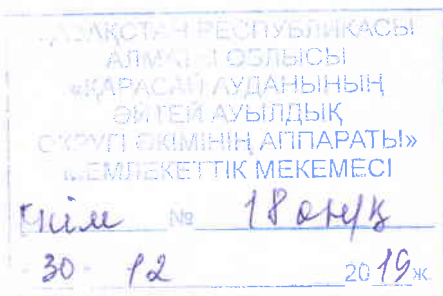 ҚАЗАҚСТАН РЕСПУБЛИКАСЫ
АЛМАТЫ ОБЛЫСЫ
«ҚАРАСАЙ АУДАНЫНЫҢ
ӘЙТЕЙ АУЫЛДЫҚ
ОКРУГІ ӘКІМІНІҢ АППАРАТЫ»
МЕМЛЕКЕТТІК МЕКЕМЕСІ
№ 18
30 12 2019ж.